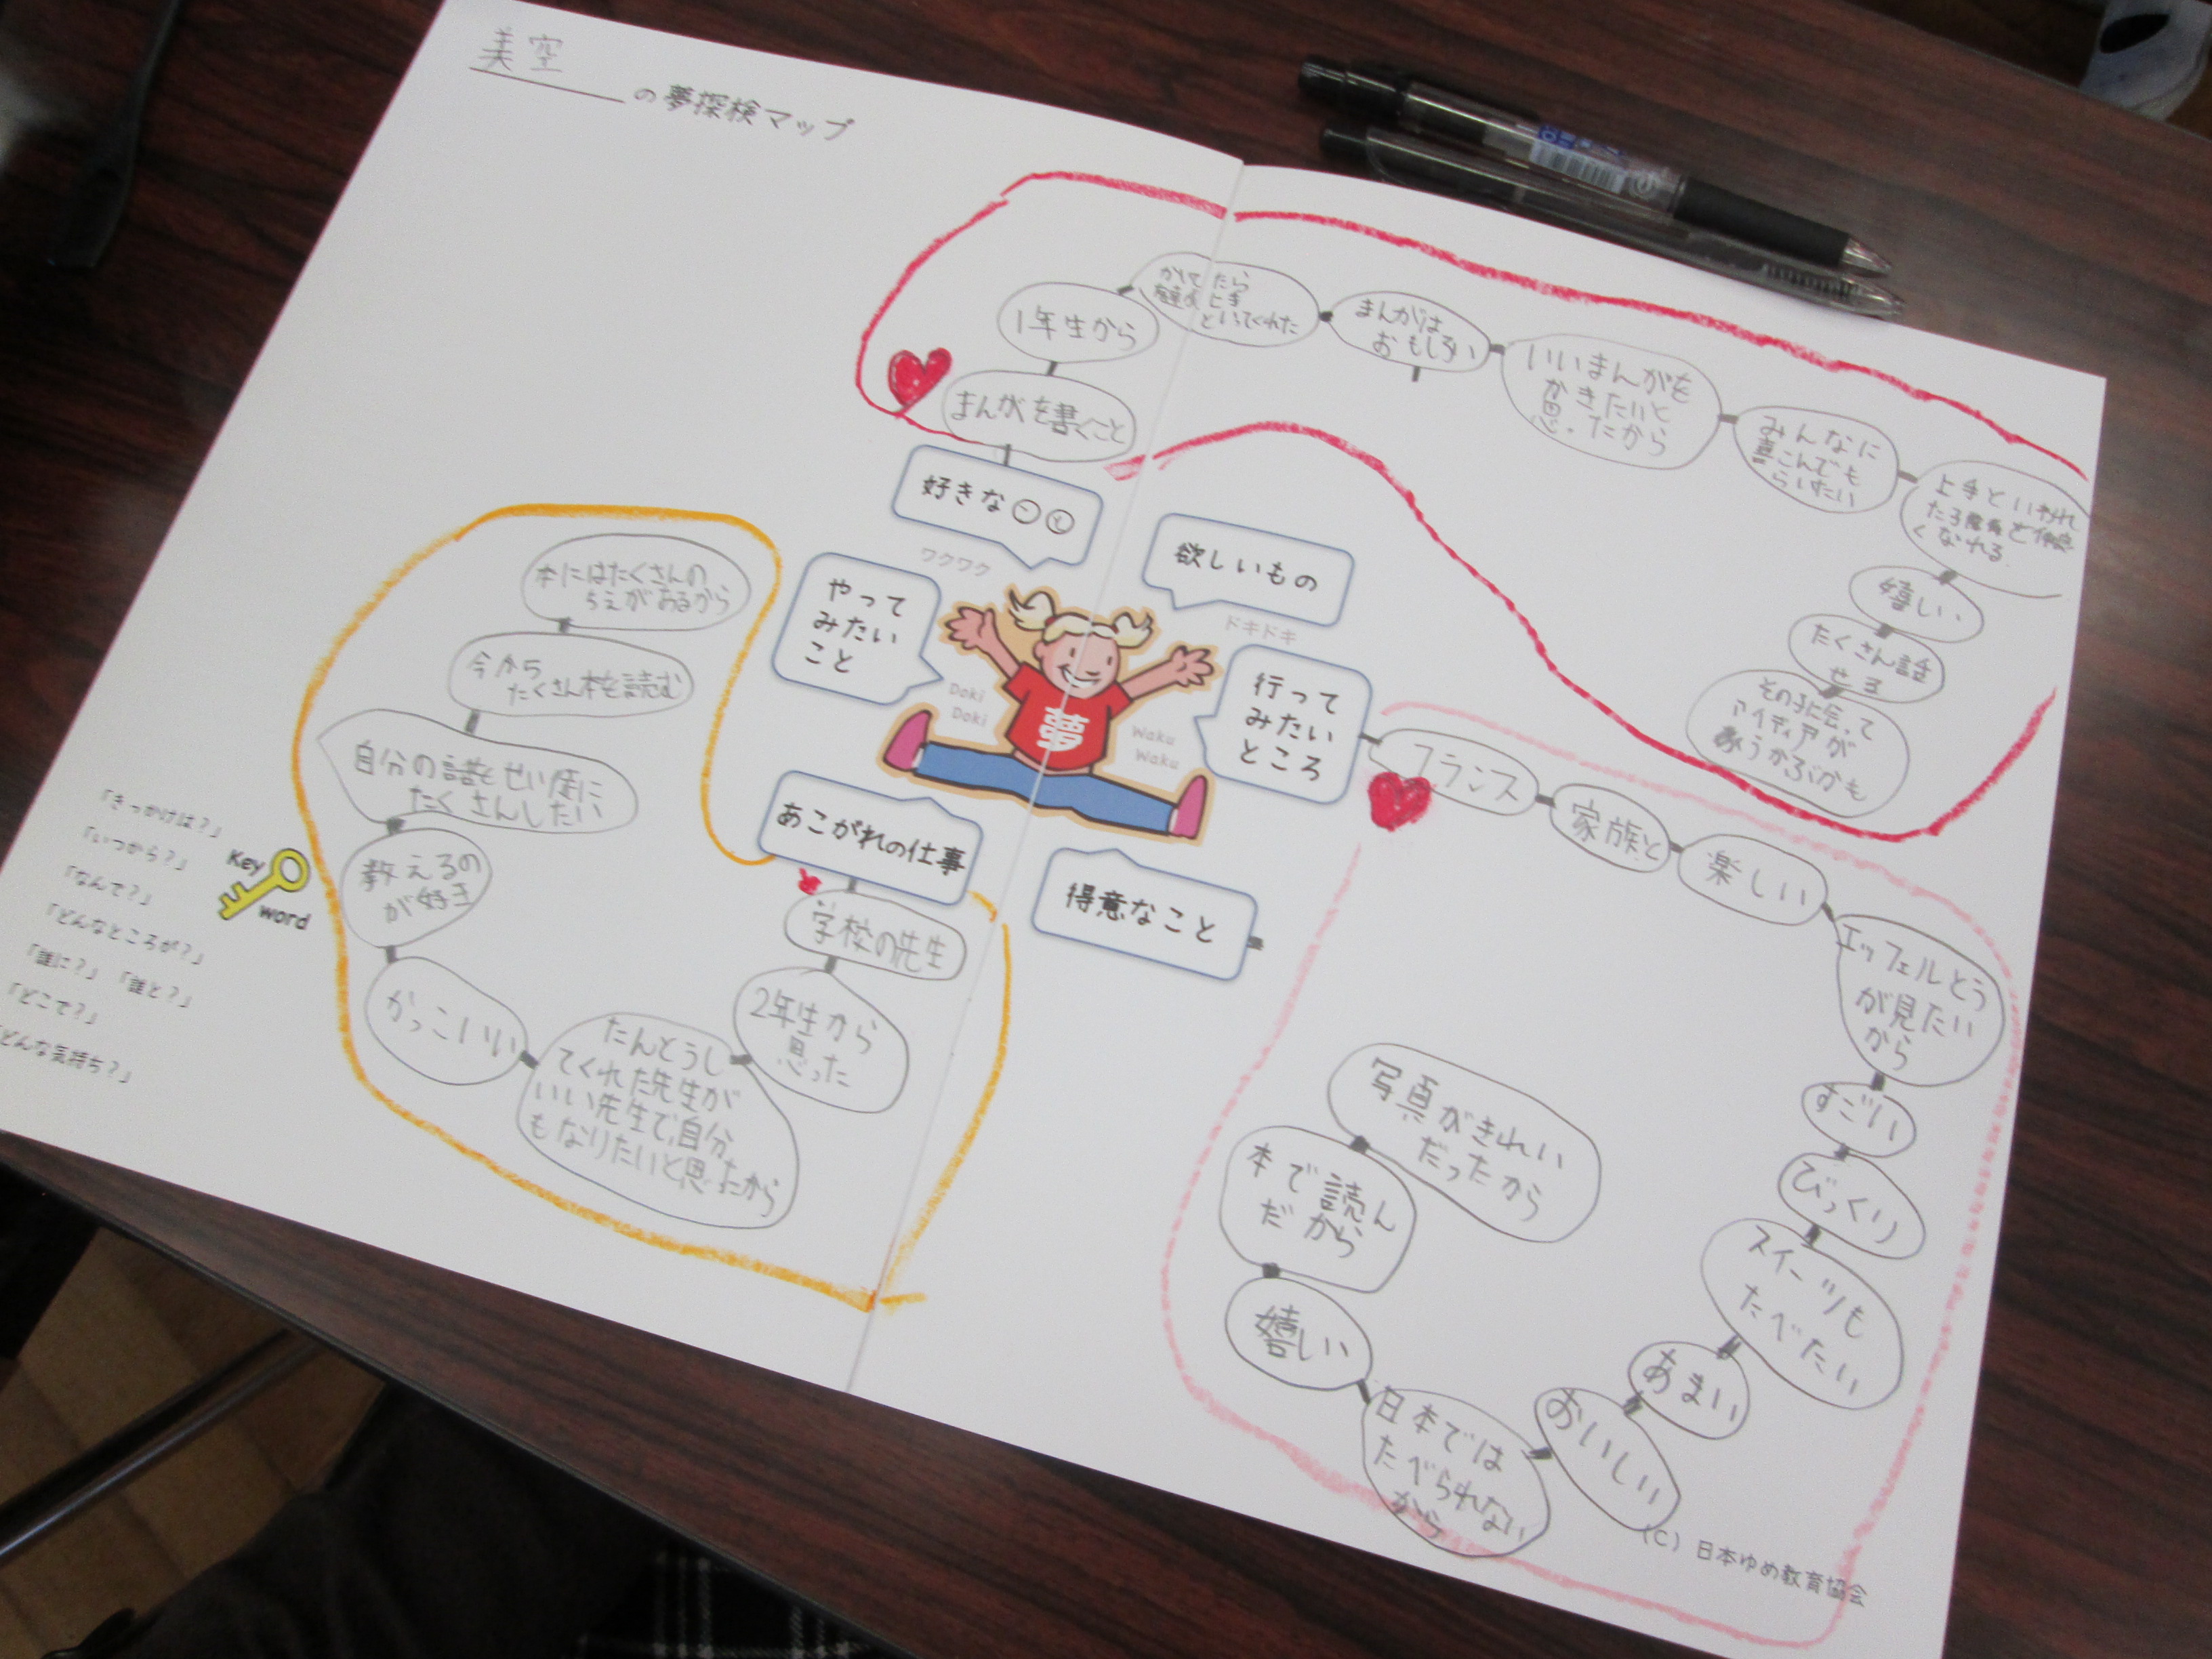 美空
の夢探検マップ
好きな○○
まんがを書くこと
1年生から
かいてたら
上手
といってくれた
まんがは
おもしろい
いいまんがを
かきたいと
思ったから
みんなに
喜こんでも
らいたい
上手といわれ
くなれる
嬉しい
たくさん話
せる
その子に会って
アイディアが
うかぶかも
欲しいもの
ワクワク
ドキドキ
Doki
Doki
Waku
Waku
夢
やって
みたい
こと
行って
みたい
ところ
フランス
家族と
楽しい
エッフェルとう
が見たい
から
すごい
びっくり
スイーツも
たべたい
あまい
おいしい
日本では
たべられない
から
嬉しい
本で読ん
だから
写真がきれい
だったから
得意なこと
あこがれの仕事
学校の先生
2年生から
思った
たんとうし
てくれた先生が
いい先生で自分
もなりたいと思ったから
かっこいい
教えるの
が好き
自分の話をせい徒に
たくさんしたい
今から
たくさん本を読む
本にはたくさんの
ちえがあるから
「きっかけは?」
「いつから?」
「なんで?」
「どんなところが?」
「誰に?」「誰と?」
「どこで?」
「どんな気持ち?」
Key
word
(C) 日本ゆめ教育協会